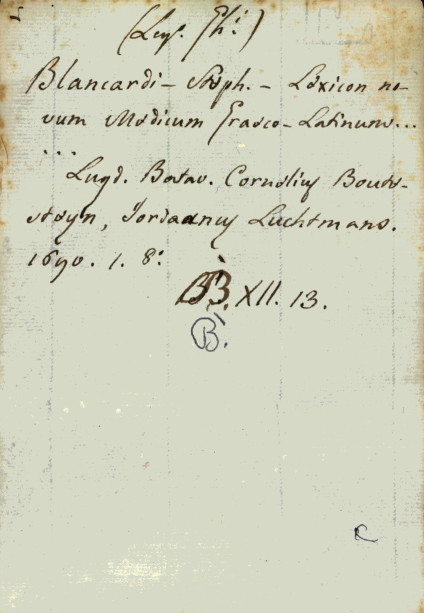 (Leys. Phi.)
Blancardi - Steph. - Lexicon no-
vum Medicum Graeco-Latinum...
...
Lugd. Batav. Cornelius Boute-
steyn, Jordaanus Luchtmans.
1690. 1. 8º
BB. XII. 13.
B.
C